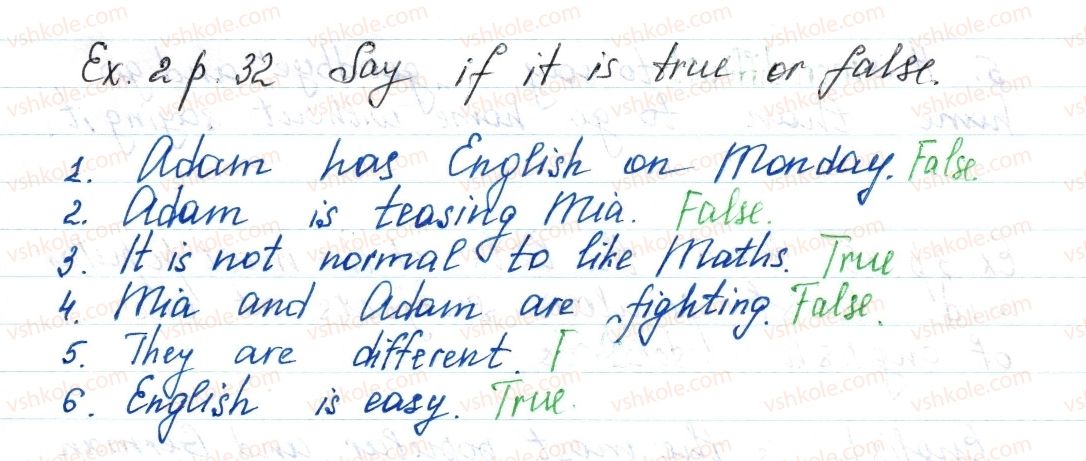 Ex. 2 p. 32 Say if it is true or false.
1. Adam has English on Monday. False.
2. Adam is teasing Mia. False.
3. It is not normal to like Maths. True
4. Mia and Adam are fighting. False.
5. They are different. T
6. English is easy. True.